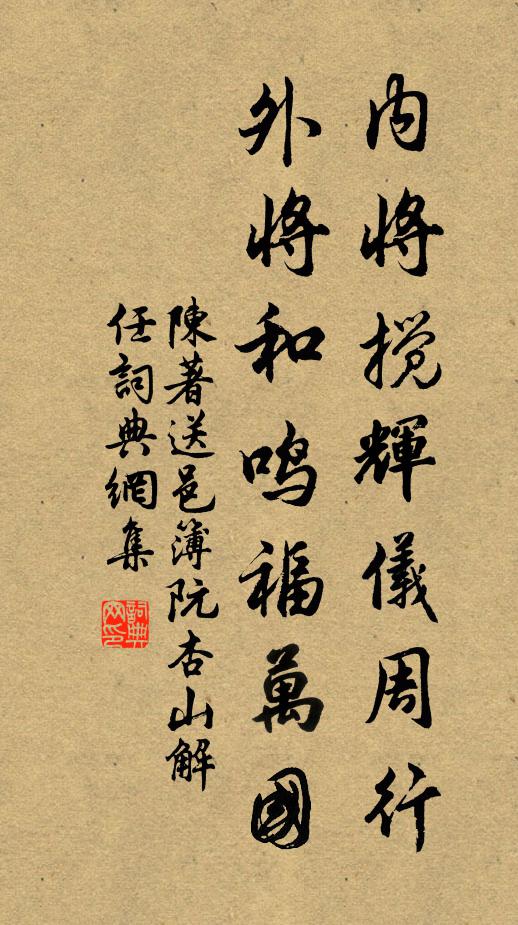 內將攬輝儀周行
外將和鳴福萬國
陳著送邑簿阮杏山解
任詞典網集
詞典網印